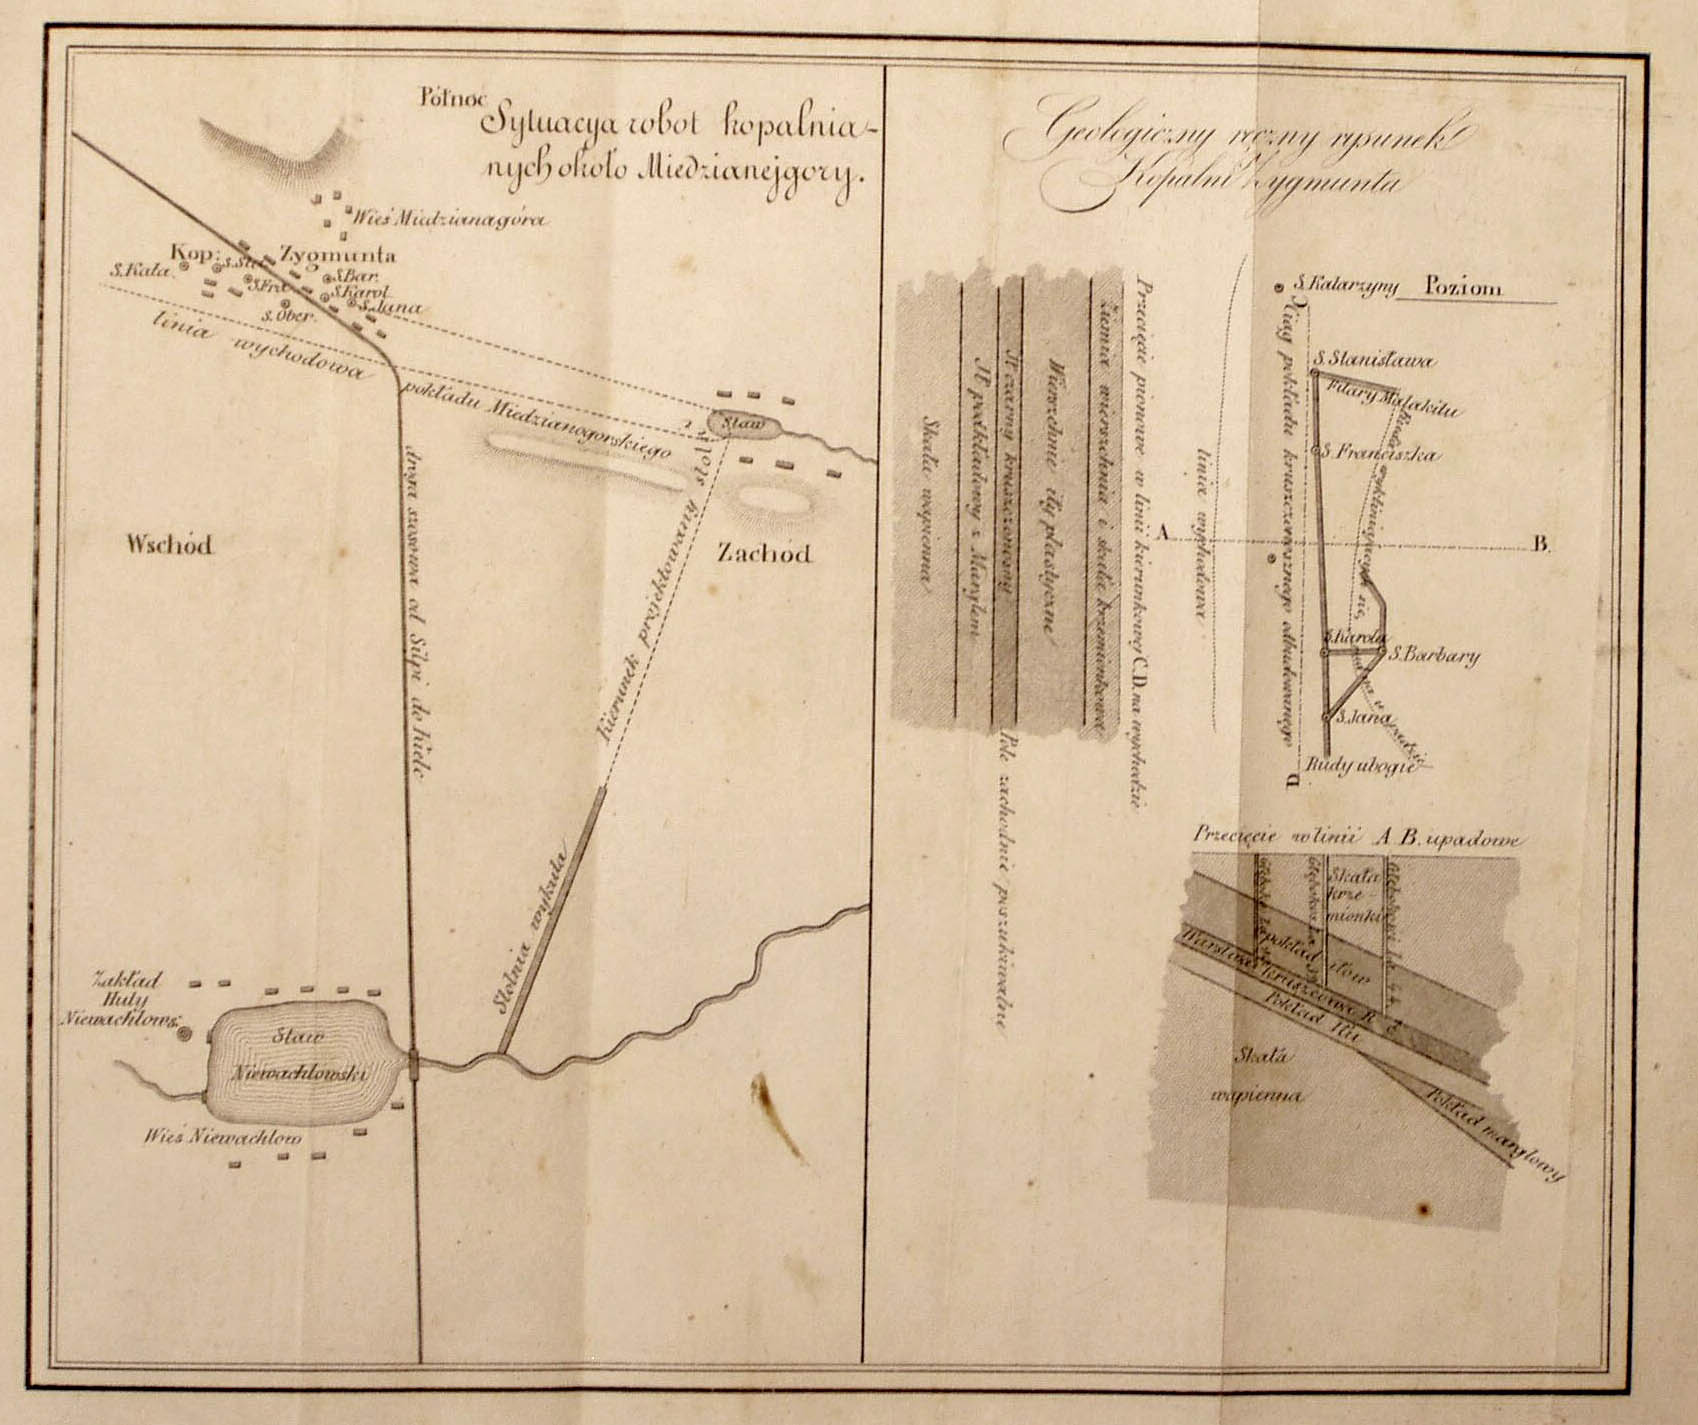 Północ
Sytuacya robot kopalnia-
nych około Miedzianejgory.
Wieś Miedzianagóra
Kop: Zygmunta
S. Kata.
S. Sta.
S. Fra.
S. Bar.
S. Karol.
S. Jana
S. Ober.
linia wychodowa pokładu Miedzianogorskiego
Staw
Wschód
Zachód
droga szosowa od Silpi do Kielc
Kierunek projektowany stol:
Stolnia wykuta
Zakład
Huty
Niewachlows:
Staw
Niewachlowski
Wieś Niewachlow
Geologiczny ręczny rysunek
Kopalni Zygmunta
Skała wapienna
Ił podkładowy z Marglem
Ił czarny kruszconosny
Wierzchnie iły plastyczne
Ziemia wierzchnia i skała krzemionkowa
Przecięcie pionowe w linii kierunkowej C.D. na wychodzie
Pole zachodnie poszukiwalne
linia wychodowa
A
B.
S. Katarzyny
Poziom
Ciąg pokładu kruszczonosznego odbudowanego
D
S. Stanisława
Filary Malakitu
S. Franciszka
S. Karola
S. Barbary
S. Jana
Rudy ubogie
Przecięcie w linii A B. upadowe
Skała
krze-
mionki
pokład iłow
Warstwa kruszcowa R
Pokład Iłu
Skała
wapienna
Pokład marglowy